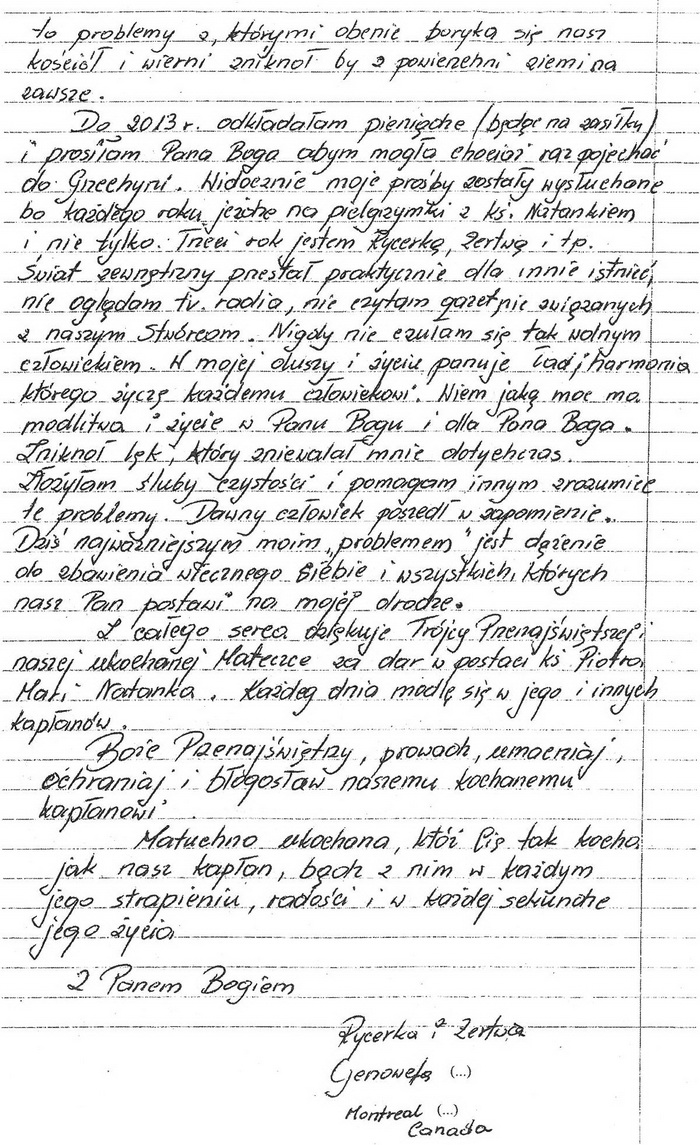 to problemy z, którymi obenie boryka się nasz
kościół i wierni zniknoł by z powierzchni ziemi na
zawsze.
Do 2013 r. odkładałam pieniądze (będąc na zasiłku)
i prosiłam Pana Boga abym mogła chociaż raz pojechać
do Grzechyni. Widocznie moje prośby zostały wysłuchane
bo każdego roku jeżdżę na pielgrzymki z ks. Natankiem
i nie tylko. Trzeci rok jestem Rycerką, Żertwą i tp.
Świat zewnętrzny przestał praktycznie dla mnie istnieć,
nie oglądam tv. radia, nie czytam gazet nie związanych
z naszym Stwórcom. Nigdy nie czułam się tak wolnym
człowiekiem. W mojej duszy i życiu panuje ład i harmonia
którego życzę każdemu człowiekowi. Wiem jaką moc ma
modlitwa i życie w Panu Bogu i dla Pana Boga.
Zniknoł lęk, który zniewalał mnie dotychczas.
Złożyłam śluby czystości i pomagam innym zrozumieć
te problemy. Dawny człowiek poszedł w zapomienie.
Dziś najważniejszym moim "problemem" jest dążenie
do zbawienia wiecznego siebie i wszystkich, których
nasz Pan postawi na mojej drodze.
Z całego serca dziękuje Trójcy Przenajświętszej i
naszej ukochanej Mateczce za dar w postaci ks Piotra
Mari Natanka. Każdeg dnia modlę się w jego i innych
kapłanów.
Boże Przenajświętrzy, prowadź, umacniaj,
ochraniaj i błogosław naszemu kochanemu
kapłanowi
Matuchno ukochana, któż Cię tak kocha
jak nasz kapłan, bądź z nim w każdym
jego strapieniu, radości i w każdej sekundzie
jego życia
Z Panem Bogiem
Rycerka i Żertwa
Genowefa (...)
Montreal (...)
Canada